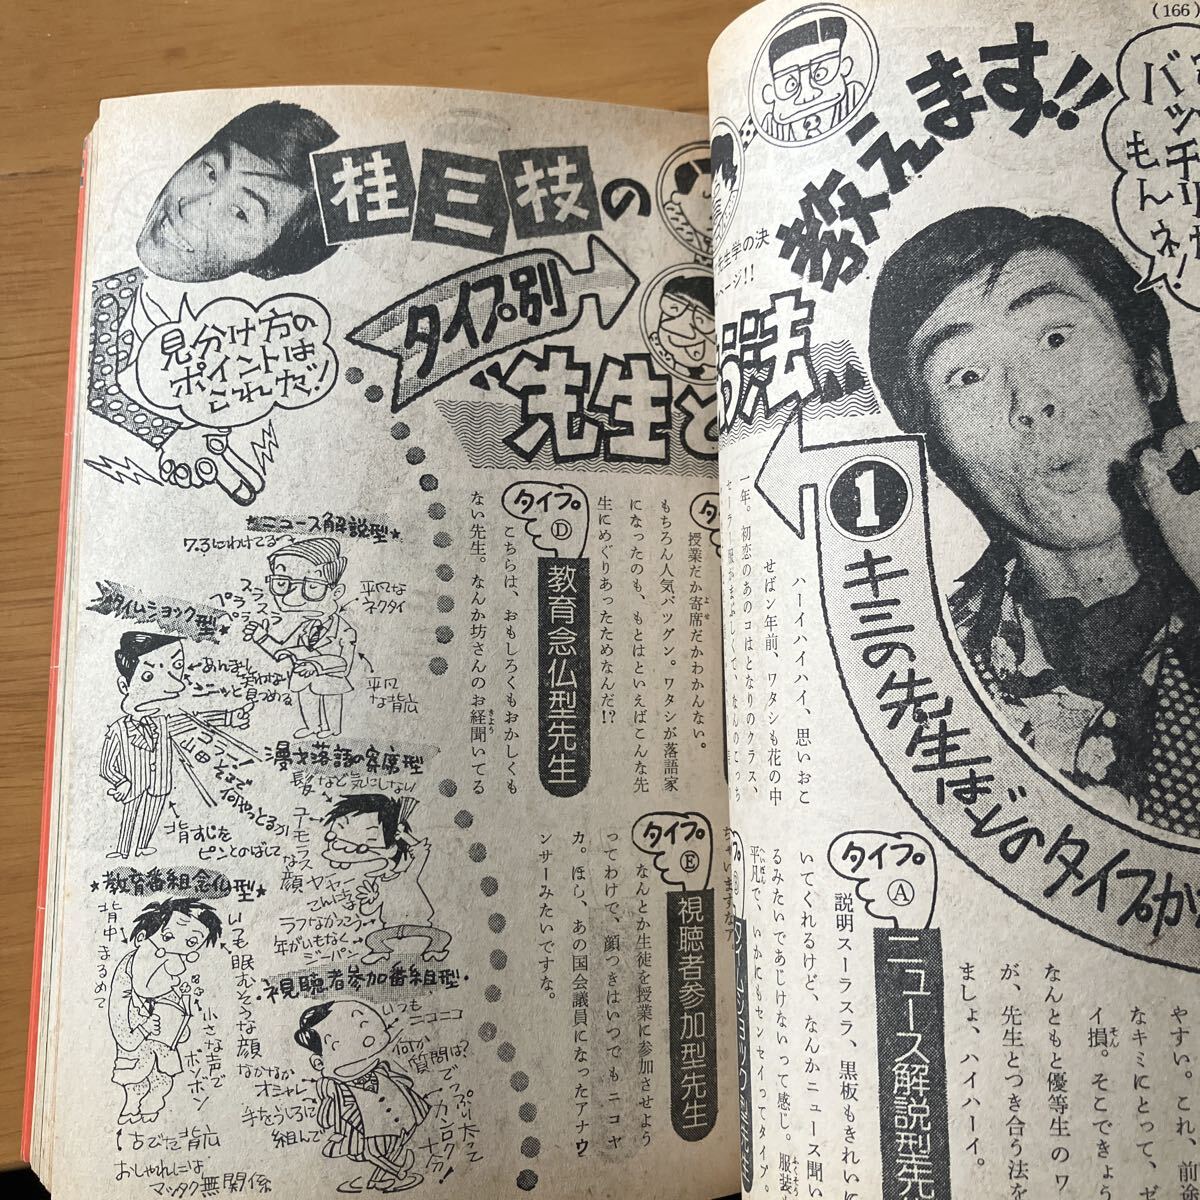 (166)
教えます!!
バッチリ
もんネ!
桂三枝の
タイプ別
"先生と
見分け方の
ポイントは
これだ!
① キミの先生はどのタイプか
ハーイハイハイ、思いおこ
せばン年前、ワタシも花の中
一年。初恋のあのコはとなりのクラス、
タイプ Ⓐ
ニュース解説型先
説明スーラスラ、黒板もきれいに
いてくれるけど、なんかニュース聞い
るみたいであじけないって感じ。服装
平凡で、いかにもセンセイってタイプ。
やすい。これ、前途
なキミにとって、ゼ
イ損。そこできょう
なんともと優等生のワ
が、先生とつき合う法を
ましょ、ハイハーイ。
授業だか寄席だかわかんない。
もちろん人気バツグン。ワタシが落語家
になったのも、もとはといえばこんな先
生にめぐりあったためなんだ!?
タイプ Ⓓ
教育念仏型先生
こちらは、おもしろくもおかしくも
ない先生。なんか坊さんのお経聞いてる
タイプ Ⓔ
視聴者参加型先生
なんとか生徒を授業に参加させよう
ってわけで、顔つきはいつでもニコヤ
カ。ほし、あの国会議員になったアナウ
ンサーみたいですな。
★ニュース解説型★
7.3にわけてる
スラスラ
ペラペラ
平凡な
ネクタイ
平凡
な背広
タイムショック型
あんまし
笑わない
ニーッと見つめる
コラー!
山田
そこで
何やっとるか
背すじを
ピンとのばして
漫才落語の寄席型
髪など気にしない
ユーモラス
な顔
ラフなかっこう
年がいもなく
ジーパン
★教育番組念仏型
背中
まるめて
いつも眠むそうな顔
小さな声で
ボソボソ
古びた背広
おしゃれには
マッタク無関係
・視聴者参加番組型・
いつも
ニコニコ
何か
質問は?
なかなか
オシャレ
手をうしろに
組んで
でっぷり太って
カンロク
十分!